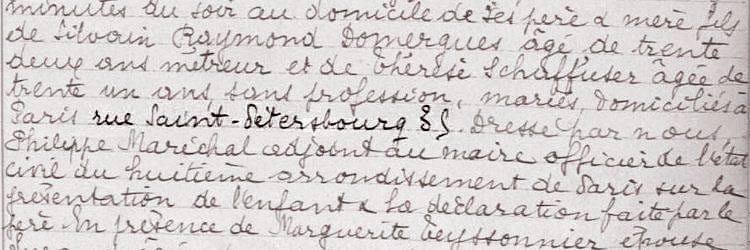 minutes du soir au domicile de ses père & mère fils
de Silvain Raymond Domergues âgé de trente
deux ans métreur et de Thérèse Schaffuser âgée de
trente un ans, sans profession, mariés, domiciliés à
Paris rue Saint-Petersbourg . Dressé par nous,
Philippe Maréchal adjoint au maire officier de l'état
civil du huitième arrondissement de Paris sur la
présentation de l'enfant & la déclaration faite par le
père En présence de Marguerite Teyssonnier épouse